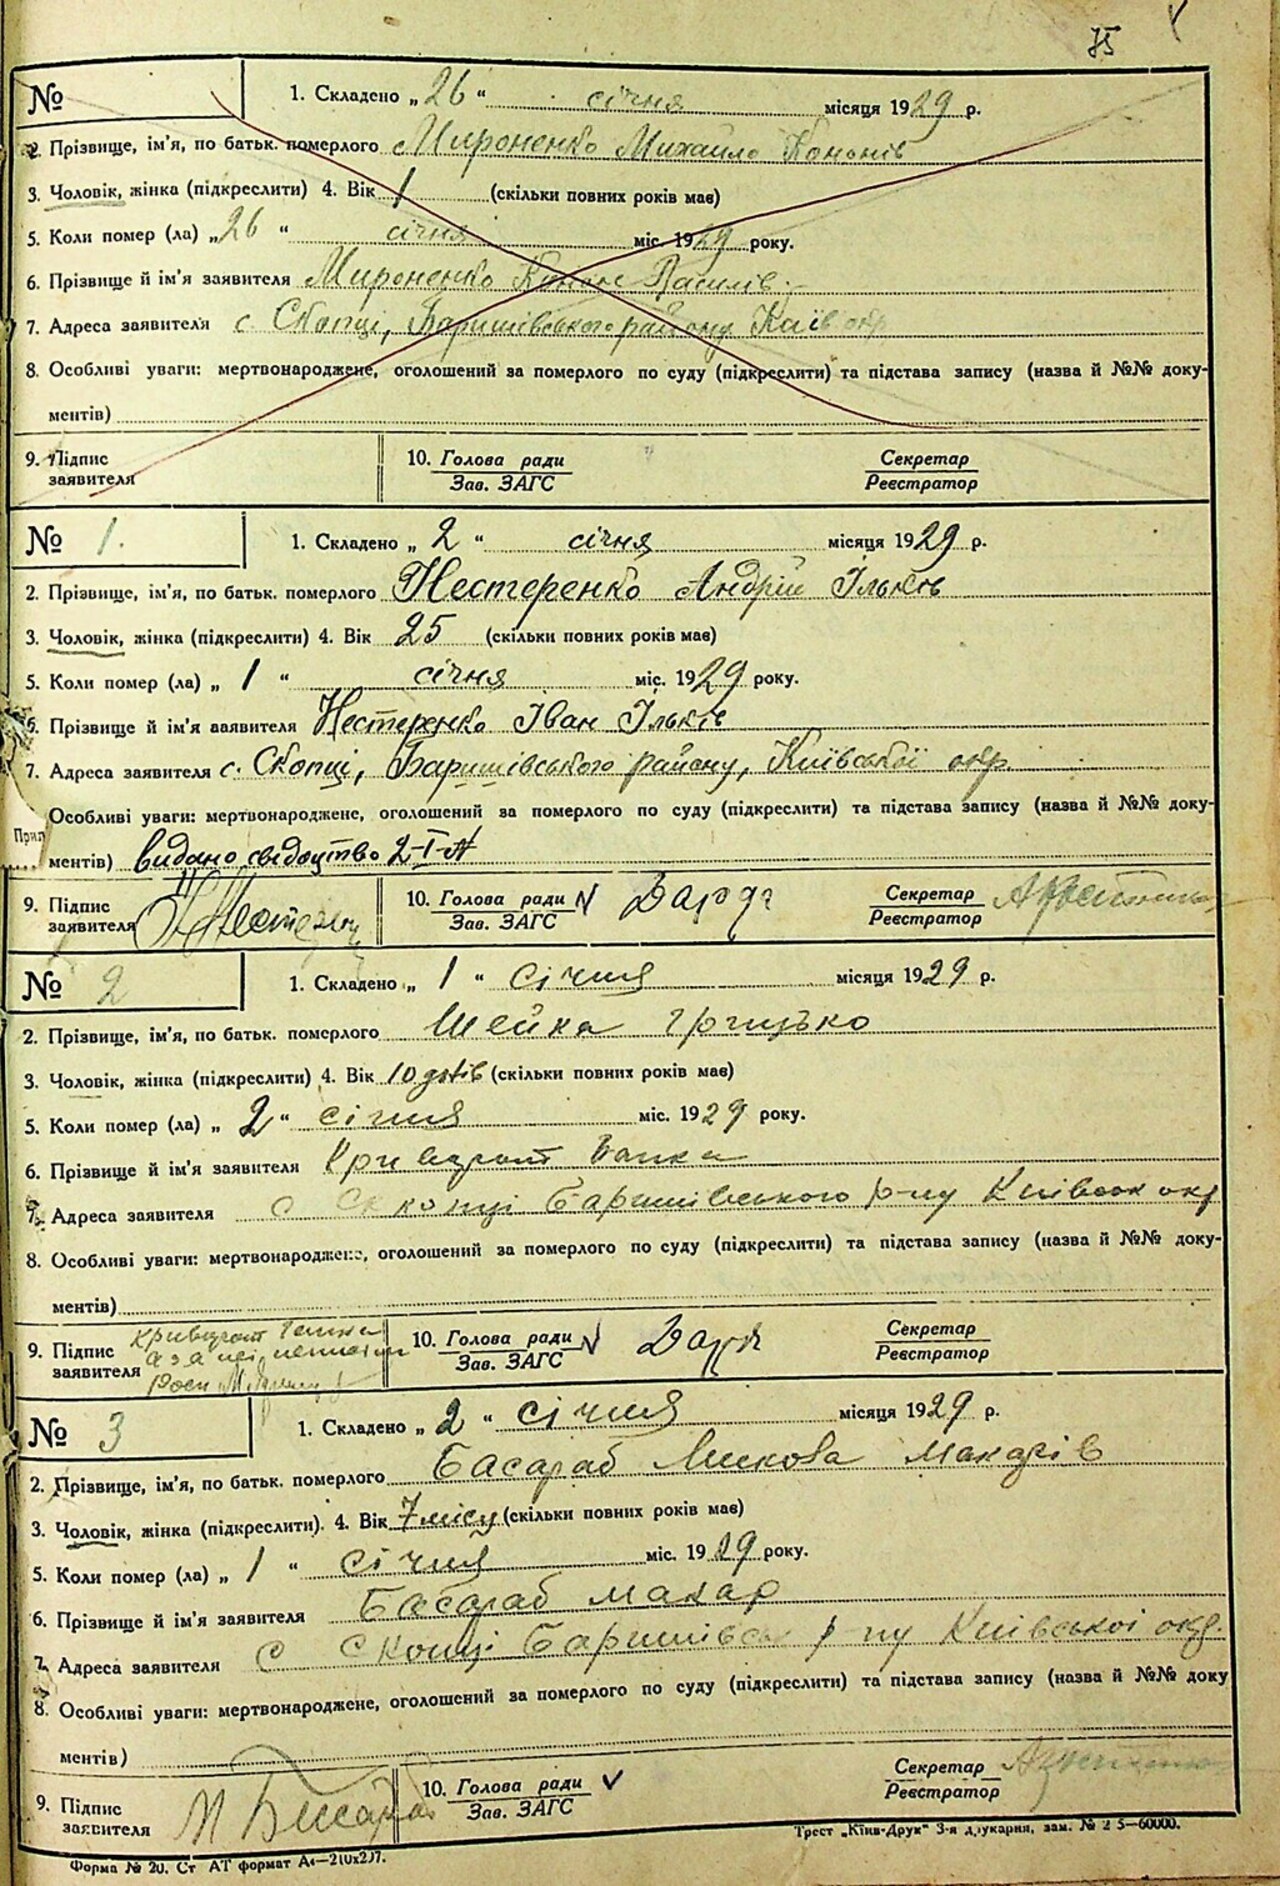 75
№ 1. Складено „ 26 “ січня місяця 1929 р.
2. Прізвище, ім'я, по батьк. померлого Мироненко Михайло Кононів
3. Чоловік, жінка (підкреслити) 4. Вік 1 (скільки повних років має)
5. Коли помер (ла) „ 26 “ січня міс. 1929 року.
6. Прізвище й ім'я заявителя Мироненко Конон Василів
7. Адреса заявителя с. Скопці, Баришівського району Київ окр
8. Особливі уваги: мертвонароджене, оголошений за померлого по суду (підкреслити) та підстава запису (назва й №№ доку-
ментів)
9. Підпис заявителя 10. Голова ради Зав. ЗАГС Секретар Реєстратор
№ 1. 1. Складено „ 2 “ січня місяця 1929 р.
2. Прізвище, ім'я, по батьк. померлого Нестеренко Андрій Ільків
3. Чоловік, жінка (підкреслити) 4. Вік 25 (скільки повних років має)
5. Коли помер (ла) „ 1 “ січня міс. 1929 року.
6. Прізвище й ім'я заявителя Нестеренко Іван Ільків
7. Адреса заявителя с. Скопці, Баришівського району, Київської окр.
Особливі уваги: мертвонароджене, оголошений за померлого по суду (підкреслити) та підстава запису (назва й №№ доку-
Прил
ментів) видано свідоцтво 2-I-
9. Підпис заявителя 10. Голова ради Зав. ЗАГС Секретар Реєстратор
№ 2 1. Складено „ 1 “ січня місяця 1929 р.
2. Прізвище, ім'я, по батьк. померлого Шейка Грицько
3. Чоловік, жінка (підкреслити) 4. Вік 10 (скільки повних років має)
5. Коли помер (ла) „ 2 “ січня міс. 1929 року.
6. Прізвище й ім'я заявителя
7. Адреса заявителя с Скопці Баришівського р-ну Київськ окр
8. Особливі уваги: мертвонароджене, оголошений за померлого по суду (підкреслити) та підстава запису (назва й №№ доку-
ментів)
9. Підпис заявителя 10. Голова ради Зав. ЗАГС Секретар Реєстратор
№ 3 1. Складено „ 2 “ січня місяця 1929 р.
2. Прізвище, ім'я, по батьк. померлого Басараб Микола Макарів
3. Чоловік, жінка (підкреслити). 4. Вік 7 місц (скільки повних років має)
5. Коли помер (ла) „ 1 “ січня міс. 1929 року.
6. Прізвище й ім'я заявителя Басараб Макар
7. Адреса заявителя с Скопці Баришівськ р-ну Київської окр.
8. Особливі уваги: мертвонароджене, оголошений за померлого по суду (підкреслити) та підстава запису (назва й №№ доку
ментів)
9. Підпис заявителя М Басараб 10. Голова ради Зав. ЗАГС Секретар Реєстратор
Форма № 20. Ст АТ формат Трест „Київ-Друк“ 3-я друкарня, зам. № 60000.